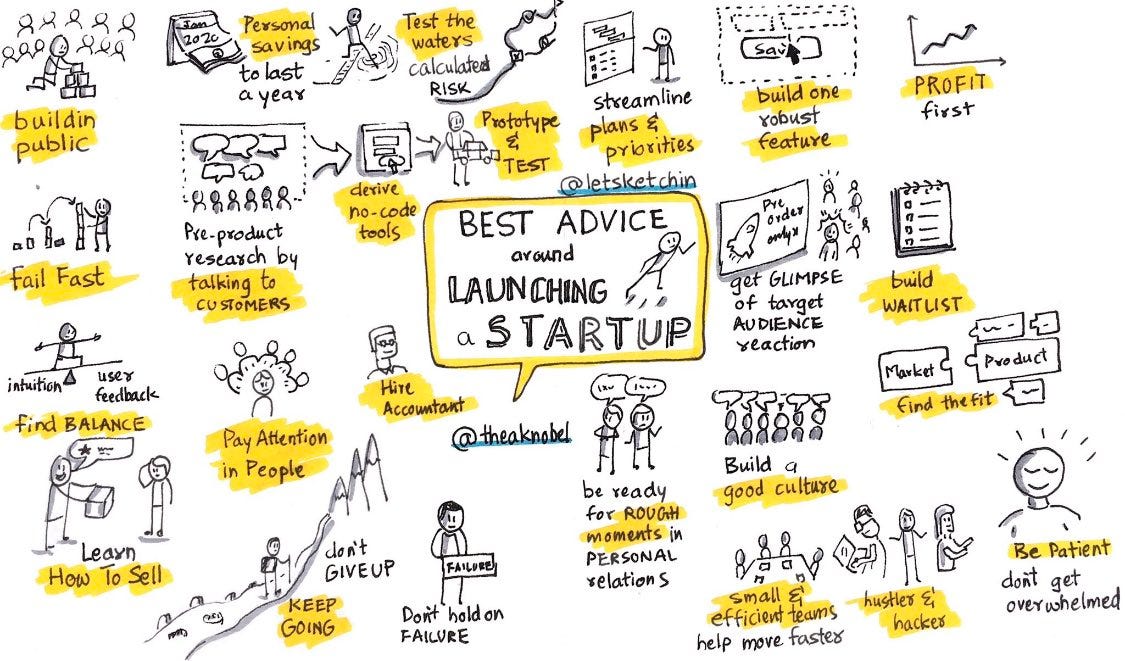 Jan
2020
Personal
savings
to last
a year
Test the
waters
calculated
RISK
streamline
plans &
priorities
Sav
build one
robust
feature
PROFIT
first
buildin
public
derive
no-code
tools
Prototype
&
TEST
@letsketchin
Fail Fast
Pre-product
research by
talking to
CUSTOMERS
BEST ADVICE
around
LAUNCHING
a STARTUP
Pre
order
only
get GLIMPSE
of target
AUDIENCE
reaction
build
WAITLIST
intuition
user
feedback
find BALANCE
Pay Attention
in People
Hire
Accountant
@theaknobel
Market
Product
find the fit
Learn
How To Sell
don't
GIVE UP
KEEP
GOING
FAILURE
Don't hold on
FAILURE
be ready
for ROUGH
moments in
PERSONAL
relations
Build a
good culture
small &
efficient teams
help move faster
hustler &
hacker
Be Patient
don't get
overwhelmed